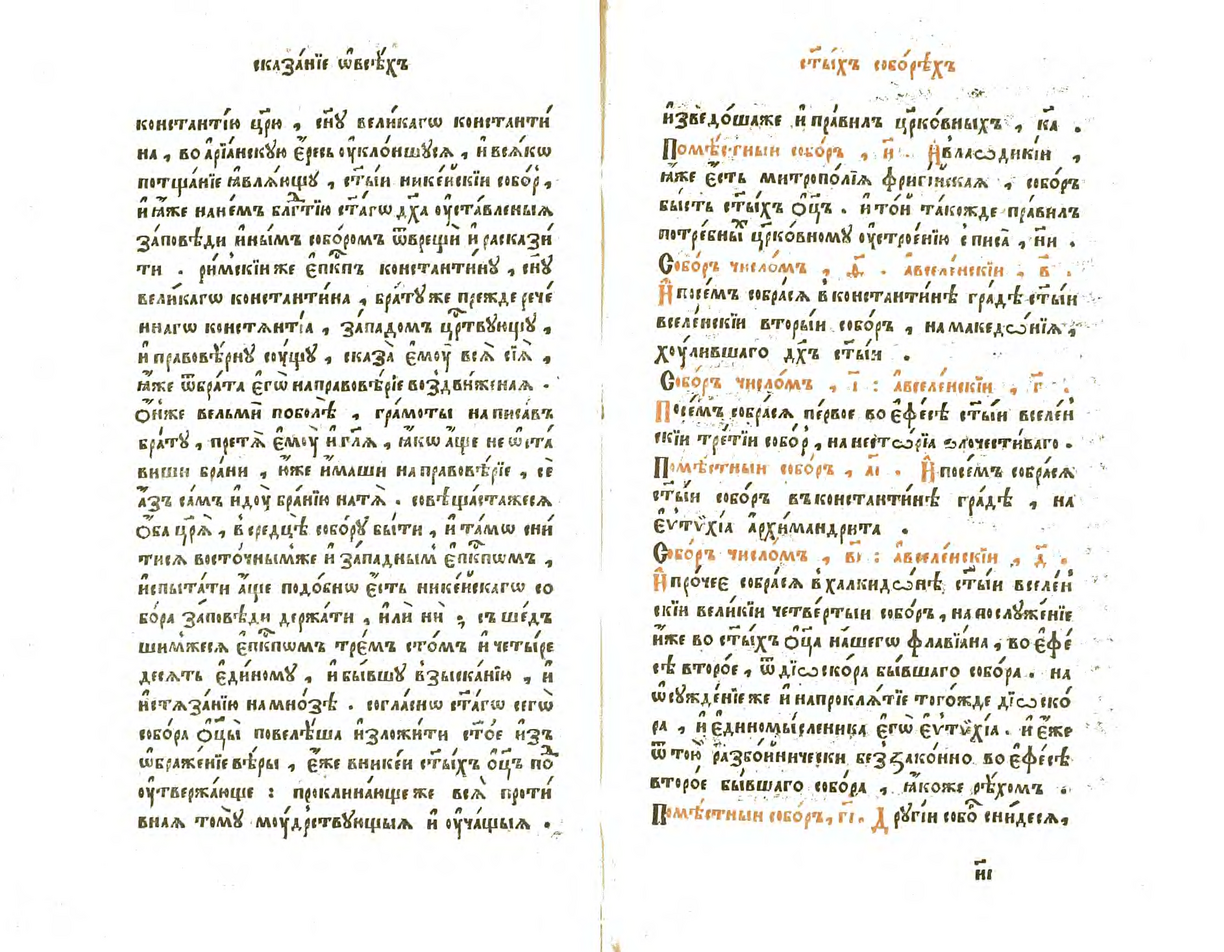 сказа́нїе ѡ҆всѣ́хъ
константі́ю цр҃ю̀ , сн҃у вели́кагѡ константи́
на , во а҆рїа́нскую є҆́ресь ᲂу҆кло́ншуся , и҆ вся́кѡ
потща́нїе ꙗ҆вля́ющу , ст҃ы́и нике́искїи собо́р ,
и҆ ꙗ҆́же нане́мъ блг҃тїю ст҃а́гѡ дх҃а ᲂу҆ста́вленыѧ
за́повѣди и҆ны́мъ собо́ромъ ѿврещѝ и҆ раскази́
ти . ри́мскїи же є҆пк҃пъ константи́ну , сн҃у
вели́кагѡ константи́на , бра́ту же пре́жде рече́
ннагѡ констѧ́нтїа , за́падомъ цр҃твующу ,
и҆ правовѣ́рну су́щу , сказа̀ є҆мꙋ̀ всѧ̀ сїѧ̀ ,
ꙗ҆́же ѿбра́та є҆гѡ̀ направовѣ́рїе воздви́женаѧ .
Ѻ҆́нже вельмѝ поболѣ̀ , гра́моты написа́въ
бра́ту , претѧ̀ є҆мꙋ̀ и҆ гл҃ѧ , ꙗ҆́кѡ а҆́ще не ѡ҆ста́
виши бра́ни , ю҆́же и҆́маши направовѣ́рїе , се́
а҆́зъ са́мъ и҆дꙋ̀ бра́нїю натѧ̀ . совѣща́стажесѧ
Ѻ҆́ба цр҃ѧ̀ , в сре́дцѣ собо́ру бы́ти , и҆ та́мѡ сни́
тисѧ восто́чнымже и҆ за́падным є҆пк҃пѡмъ ,
и҆спыта́ти а҆́ще подо́бнѡ є҆́сть нике́искагѡ со
бо́ра за́повѣди держа́ти , и҆лѝ нѝ ; съшед
шимжесѧ є҆пк҃пѡмъ тре́мъ сто́м и҆ четы́ре
десѧть є҆ди́ному , и҆ бы́вшу взыска́нїю , и҆
и҆стѧза́нїю намно́зѣ . согла́снѡ ст҃а́гѡ сегѡ̀
собо́ра Ѻ҆ц҃ы̀ повелѣ́ша и҆зложи́ти ст҃о́е и҆зъ
ѡ҆браже́нїе вѣ́ры , є҆́же вникеи ст҃ы́хъ Ѻ҆ц҃ъ по
ᲂу҆твержа́юще : проклина́юще же всѧ̀ проти́
внаѧ тому̀ мᲂу́дрствующыѧ и҆ ᲂу҆ча́щыѧ .
ст҃ы́хъ собо́рѣхъ
и҆зведо́шаже и҆ пра́вилъ цр҃ко́вныхъ , к҃а .
Помѣ́стныи собо́ръ , и҃ . И҆влаѻдикі́и ,
ꙗ҆́же є҆́сть митропо́лїѧ фриги́искаѧ , собо́ръ
бы́сть ст҃ы́хъ Ѻ҆ц҃ъ . и҆ то́и та́кожде пра́вилъ
потре́бны цр҃ко́вному ᲂу҆строе́нїю списа̀ , н҃и .
Собо́ръ число́мъ , ѳ҃ . а҆вселе́нскїи , в҃ .
И҆ посе́мъ собра́сѧ в константи́нѣ гра́дѣ ст҃ы́и
вселе́нскїи вторы́и собо́ръ , намакедѻ́нїѧ ,
ху́лившаго дх҃ъ ст҃ы́и .
Собо́ръ число́мъ , і҃ : а҆вселе́нскїи , г҃ .
Посе́мъ собра́сѧ пе́рвое во є҆фе́сѣ ст҃ы́и вселе́н
скїи тре́тїи собо́р , нанестѻ́рїа ѕлочести́ваго .
Помѣ́стныи собо́ръ , а҃і . И҆ посе́мъ собра́сѧ
ст҃ы́и собо́ръ въконстанти́нѣ гра́дѣ , на
є҆ѵтѷ́хїа а҆рхимандри́та .
Собо́ръ число́мъ , в҃і : а҆вселе́нскїи , д҃ .
И҆ про́чее собра́сѧ в халкидѻ́нѣ ст҃ы́и вселе́н
скїи вели́кїи четве́ртыи собо́ръ , напослуже́нїе
и҆́же во ст҃ы́хъ Ѻ҆ц҃а на́шегѡ флавїа́на , во є҆фе́
сѣ второ́е , ѿ дїѻско́ра бы́вшаго собо́ра . на
ѡ҆сужде́нїе же и҆ напроклѧ́тїе того́жде дїѻско́
ра , и҆ є҆диномы́сленица є҆гѡ̀ є҆ѵтѷ́хїа . и҆ є҆́же
ѿ тою̀ разбо́иннически беззако́нно во є҆фе́сѣ
второ́е бы́вшаго собо́ра , ꙗ҆́коже рѣ́хом .
Помѣ́стныи собо́ръ , г҃і . Други́и собо сни́десѧ ,
н҃і